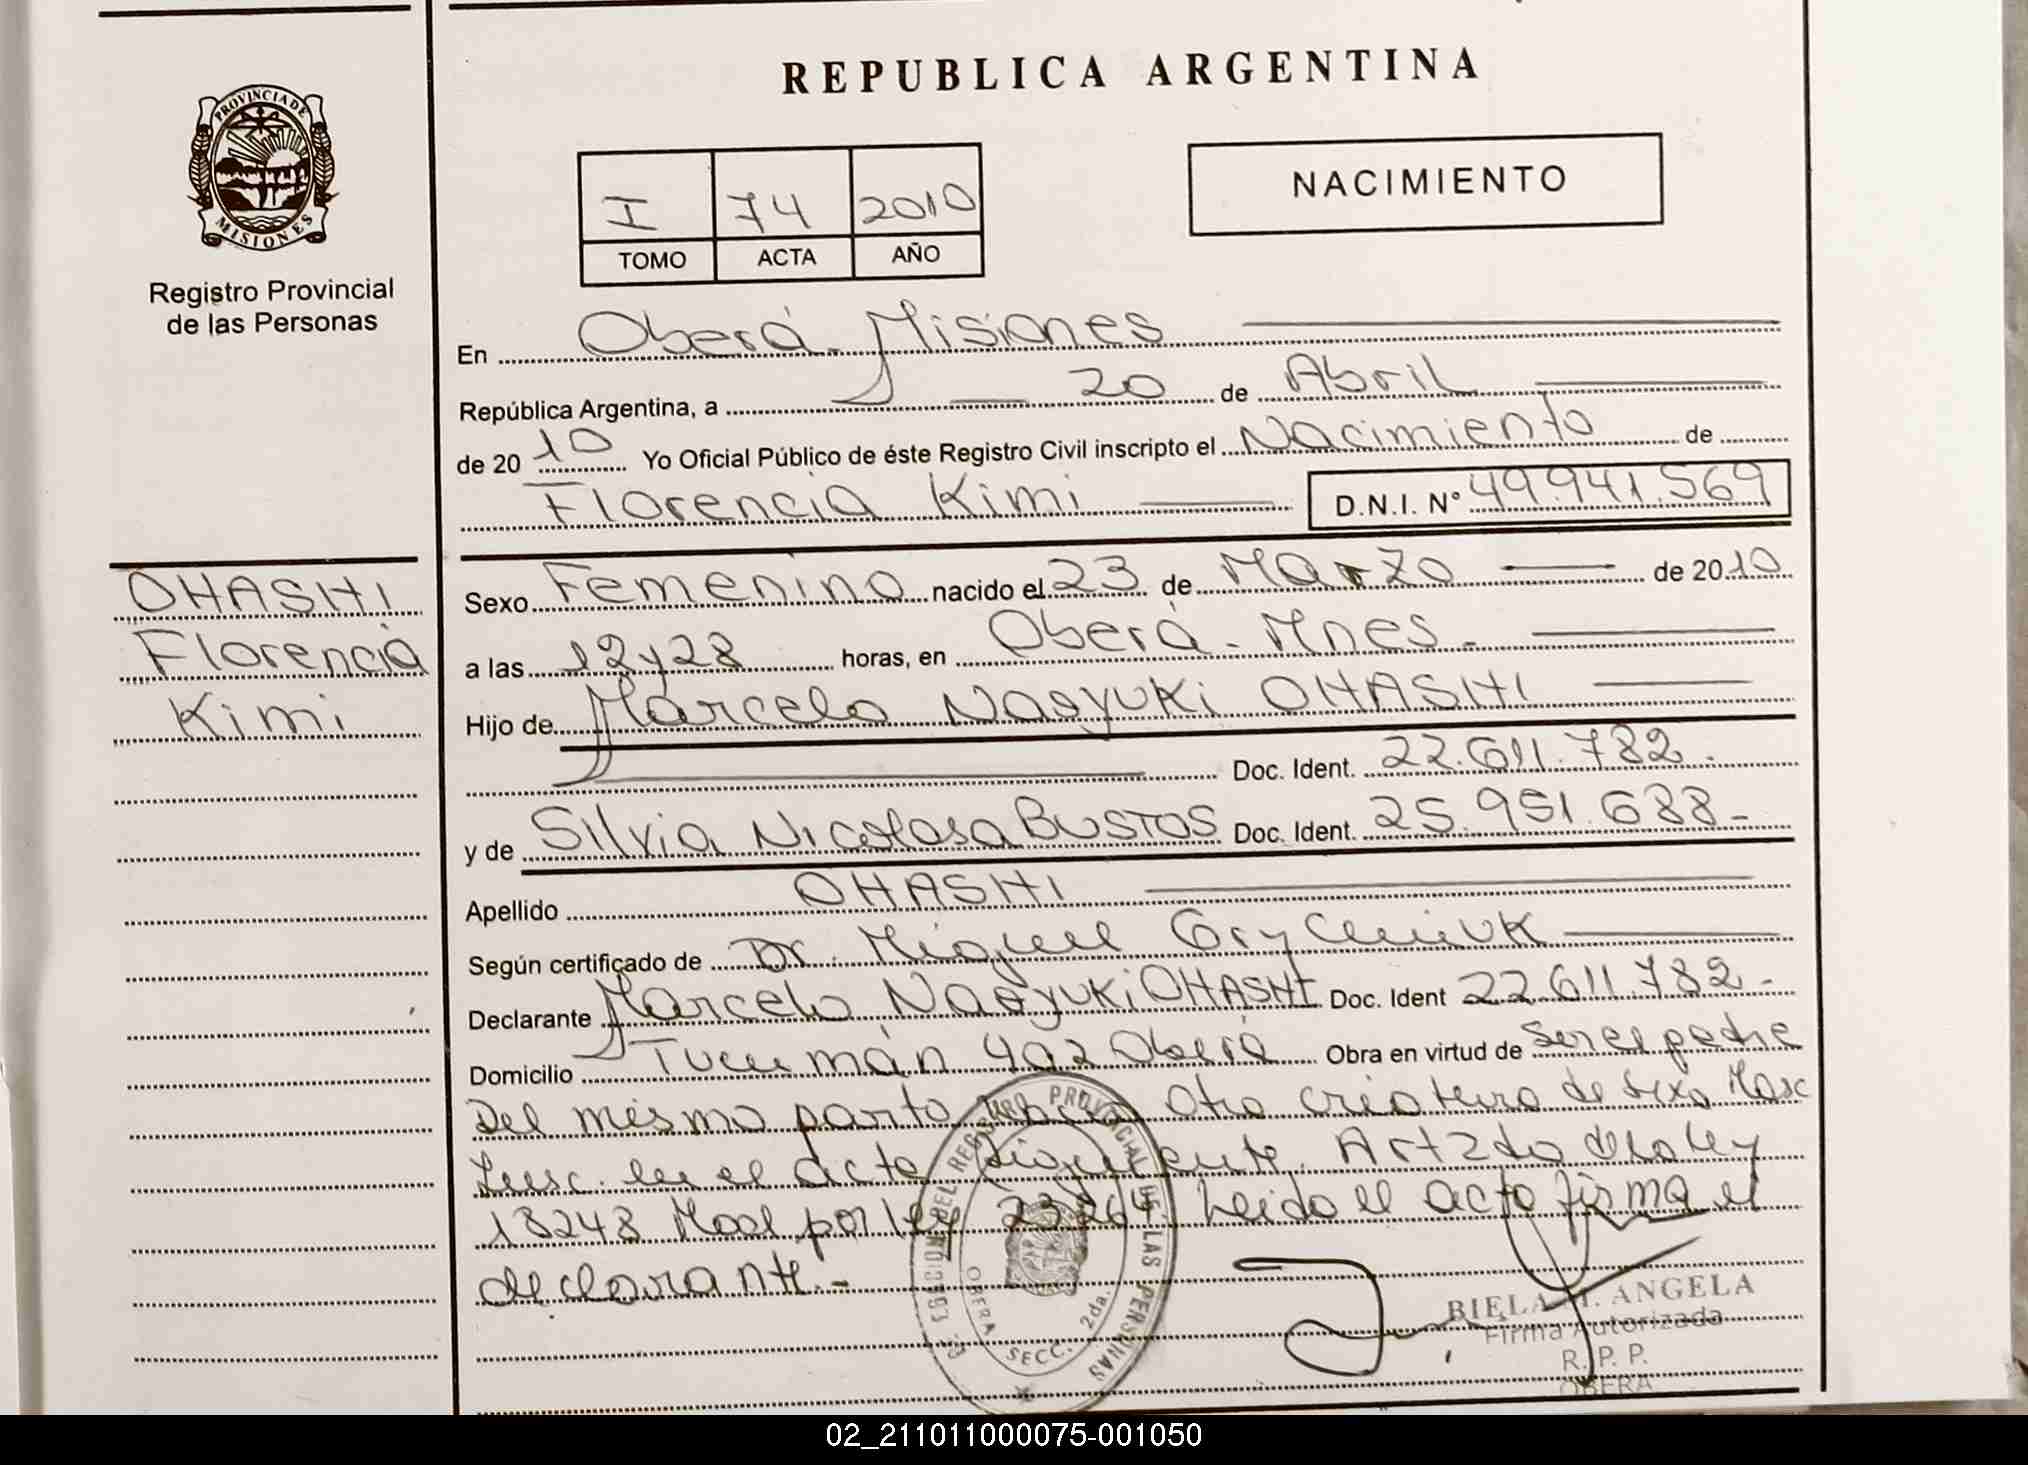 REPUBLICA ARGENTINA
PROVINCIA DE
MISIONES
Registro Provincial
de las Personas
NACIMIENTO
I 74 2010
TOMO ACTA AÑO
En Oberá Misiones
República Argentina, a 20 de Abril
de 20 10 Yo Oficial Público de éste Registro Civil inscripto el Nacimiento de
Florencia Kimi D.N.I. N° 49.941.569
OHASHI
Florencia
Kimi
Sexo Femenino nacido el 23 de Marzo de 2010
a las 12y28 horas, en Oberá - Mnes -
Hijo de Marcelo Naoyuki OHASHI
Doc. Ident. 22.611.782.
y de Silvia Nicolasa BUSTOS Doc. Ident. 25.951.688-
Apellido OHASHI
Según certificado de Dr. Miguel
Declarante Marcelo Naoyuki OHASHI Doc. Ident 22.611.782-
Domicilio Tucumán 402 Oberá Obra en virtud de ser el padre
Del mismo parto nació otra criatura de sexo Masc
Insc. en el acta siguiente. Art 2do de la ley
18248 Mod por ley 23264. Leido el acta firma el
declarante.-
DELEGACION DEL REGISTRO PROVINCIAL DE LAS PERSONAS
OBERA SECC. 2da.
BIELA M. ANGELA
Firma Autorizada
R. P. P.
OBERA
02_211011000075-001050